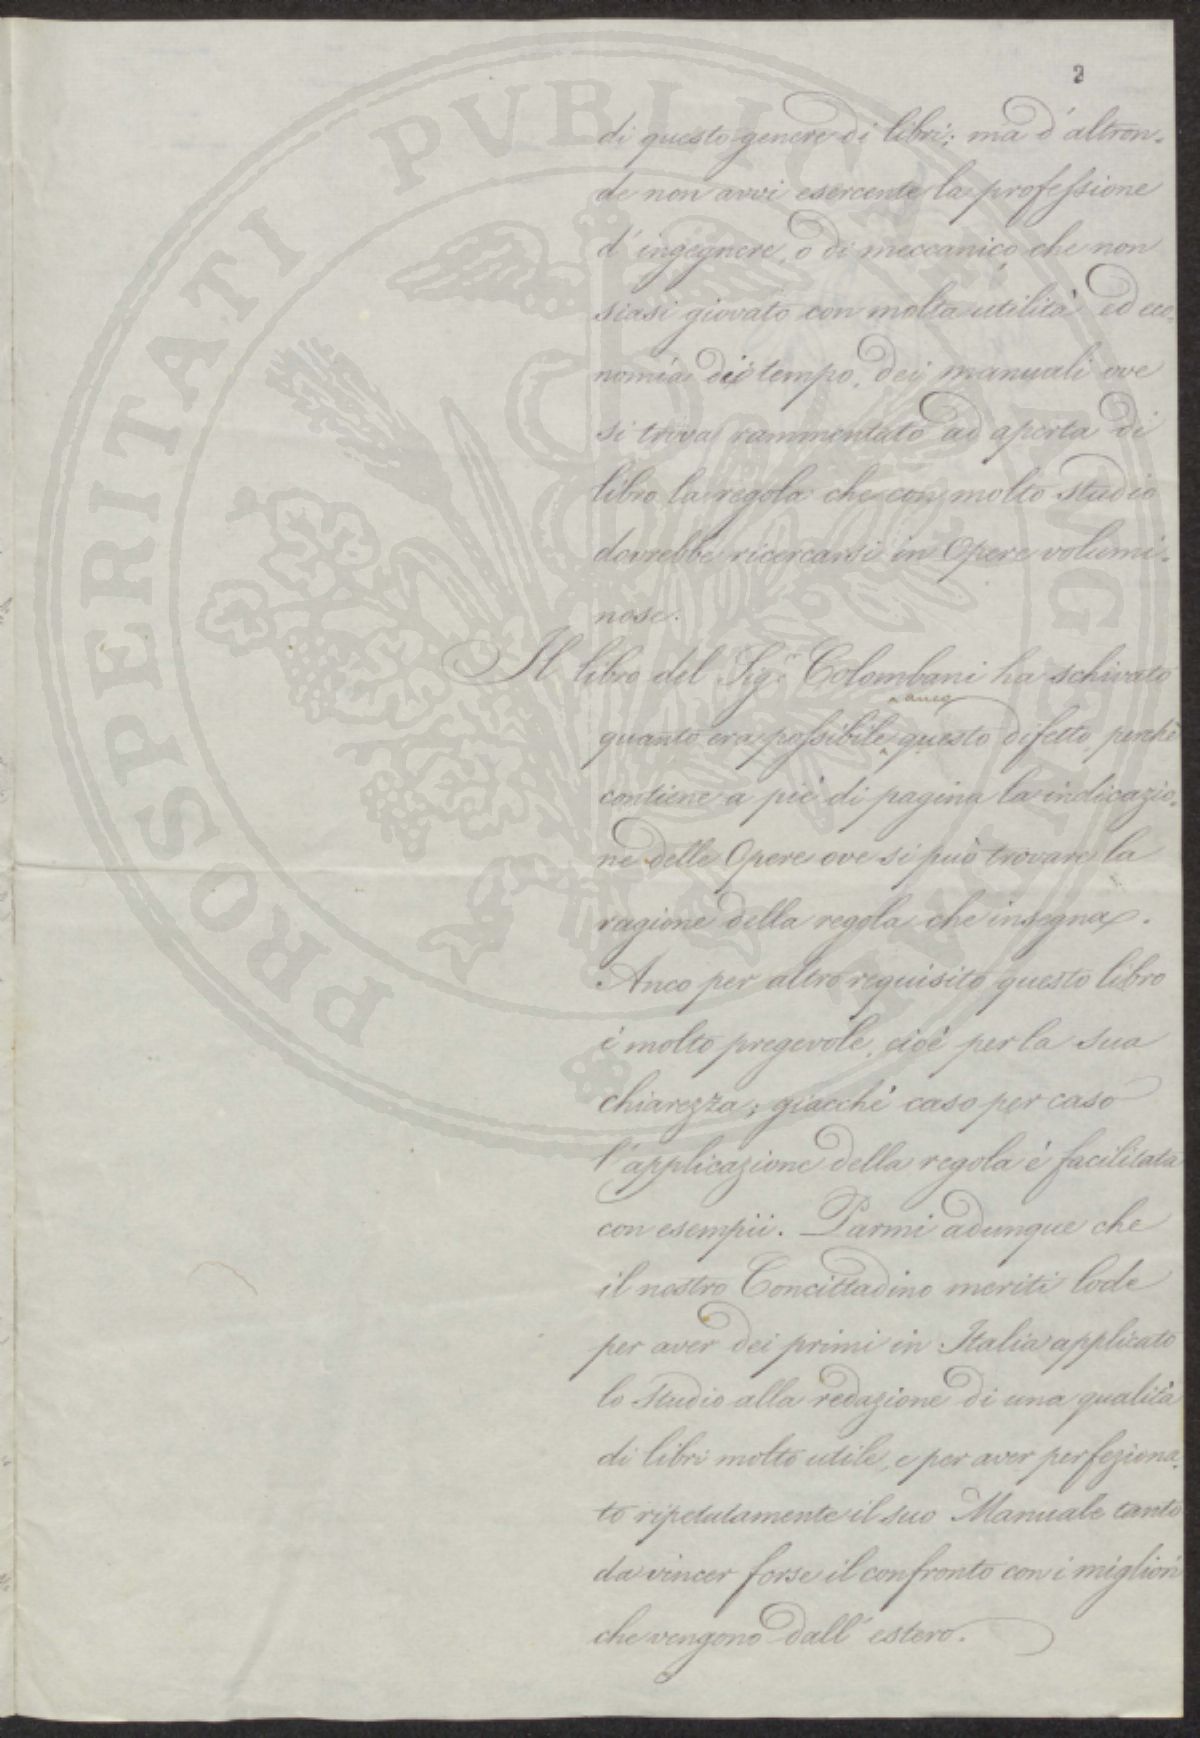 2
di questo genere di libri; ma d'altron-
de non avvi esercente la professione
d'ingegnere, o di meccanico che non
siasi giovato con molta utilità ed eco-
nomia di tempo, dei manuali ove
si trova rammentato ad aperta di
libro la regola che con molto studio
dovrebbe ricercarsi in Opere volumi-
nose.
Il libro del Sigr. Colombani ha schivato
anco
quanto era possibile questo difetto, perchè
contiene a piè di pagina la indicazio-
ne delle Opere ove si può trovare la
ragione della regola che insegna.
Anco per altro requisito questo libro
è molto pregevole, cioè per la sua
chiarezza; giacchè caso per caso
l'applicazione della regola è facilitata
con esempii. Parmi adunque che
il nostro Concittadino meriti lode
per aver dei primi in Italia applicato
lo studio alla redazione di una qualità
di libri molto utile, e per aver perfeziona-
to ripetutamente il suo Manuale tanto
da vincer forse il confronto con i migliori
che vengono dall'estero.
PROSPERITATI PVBLICAE